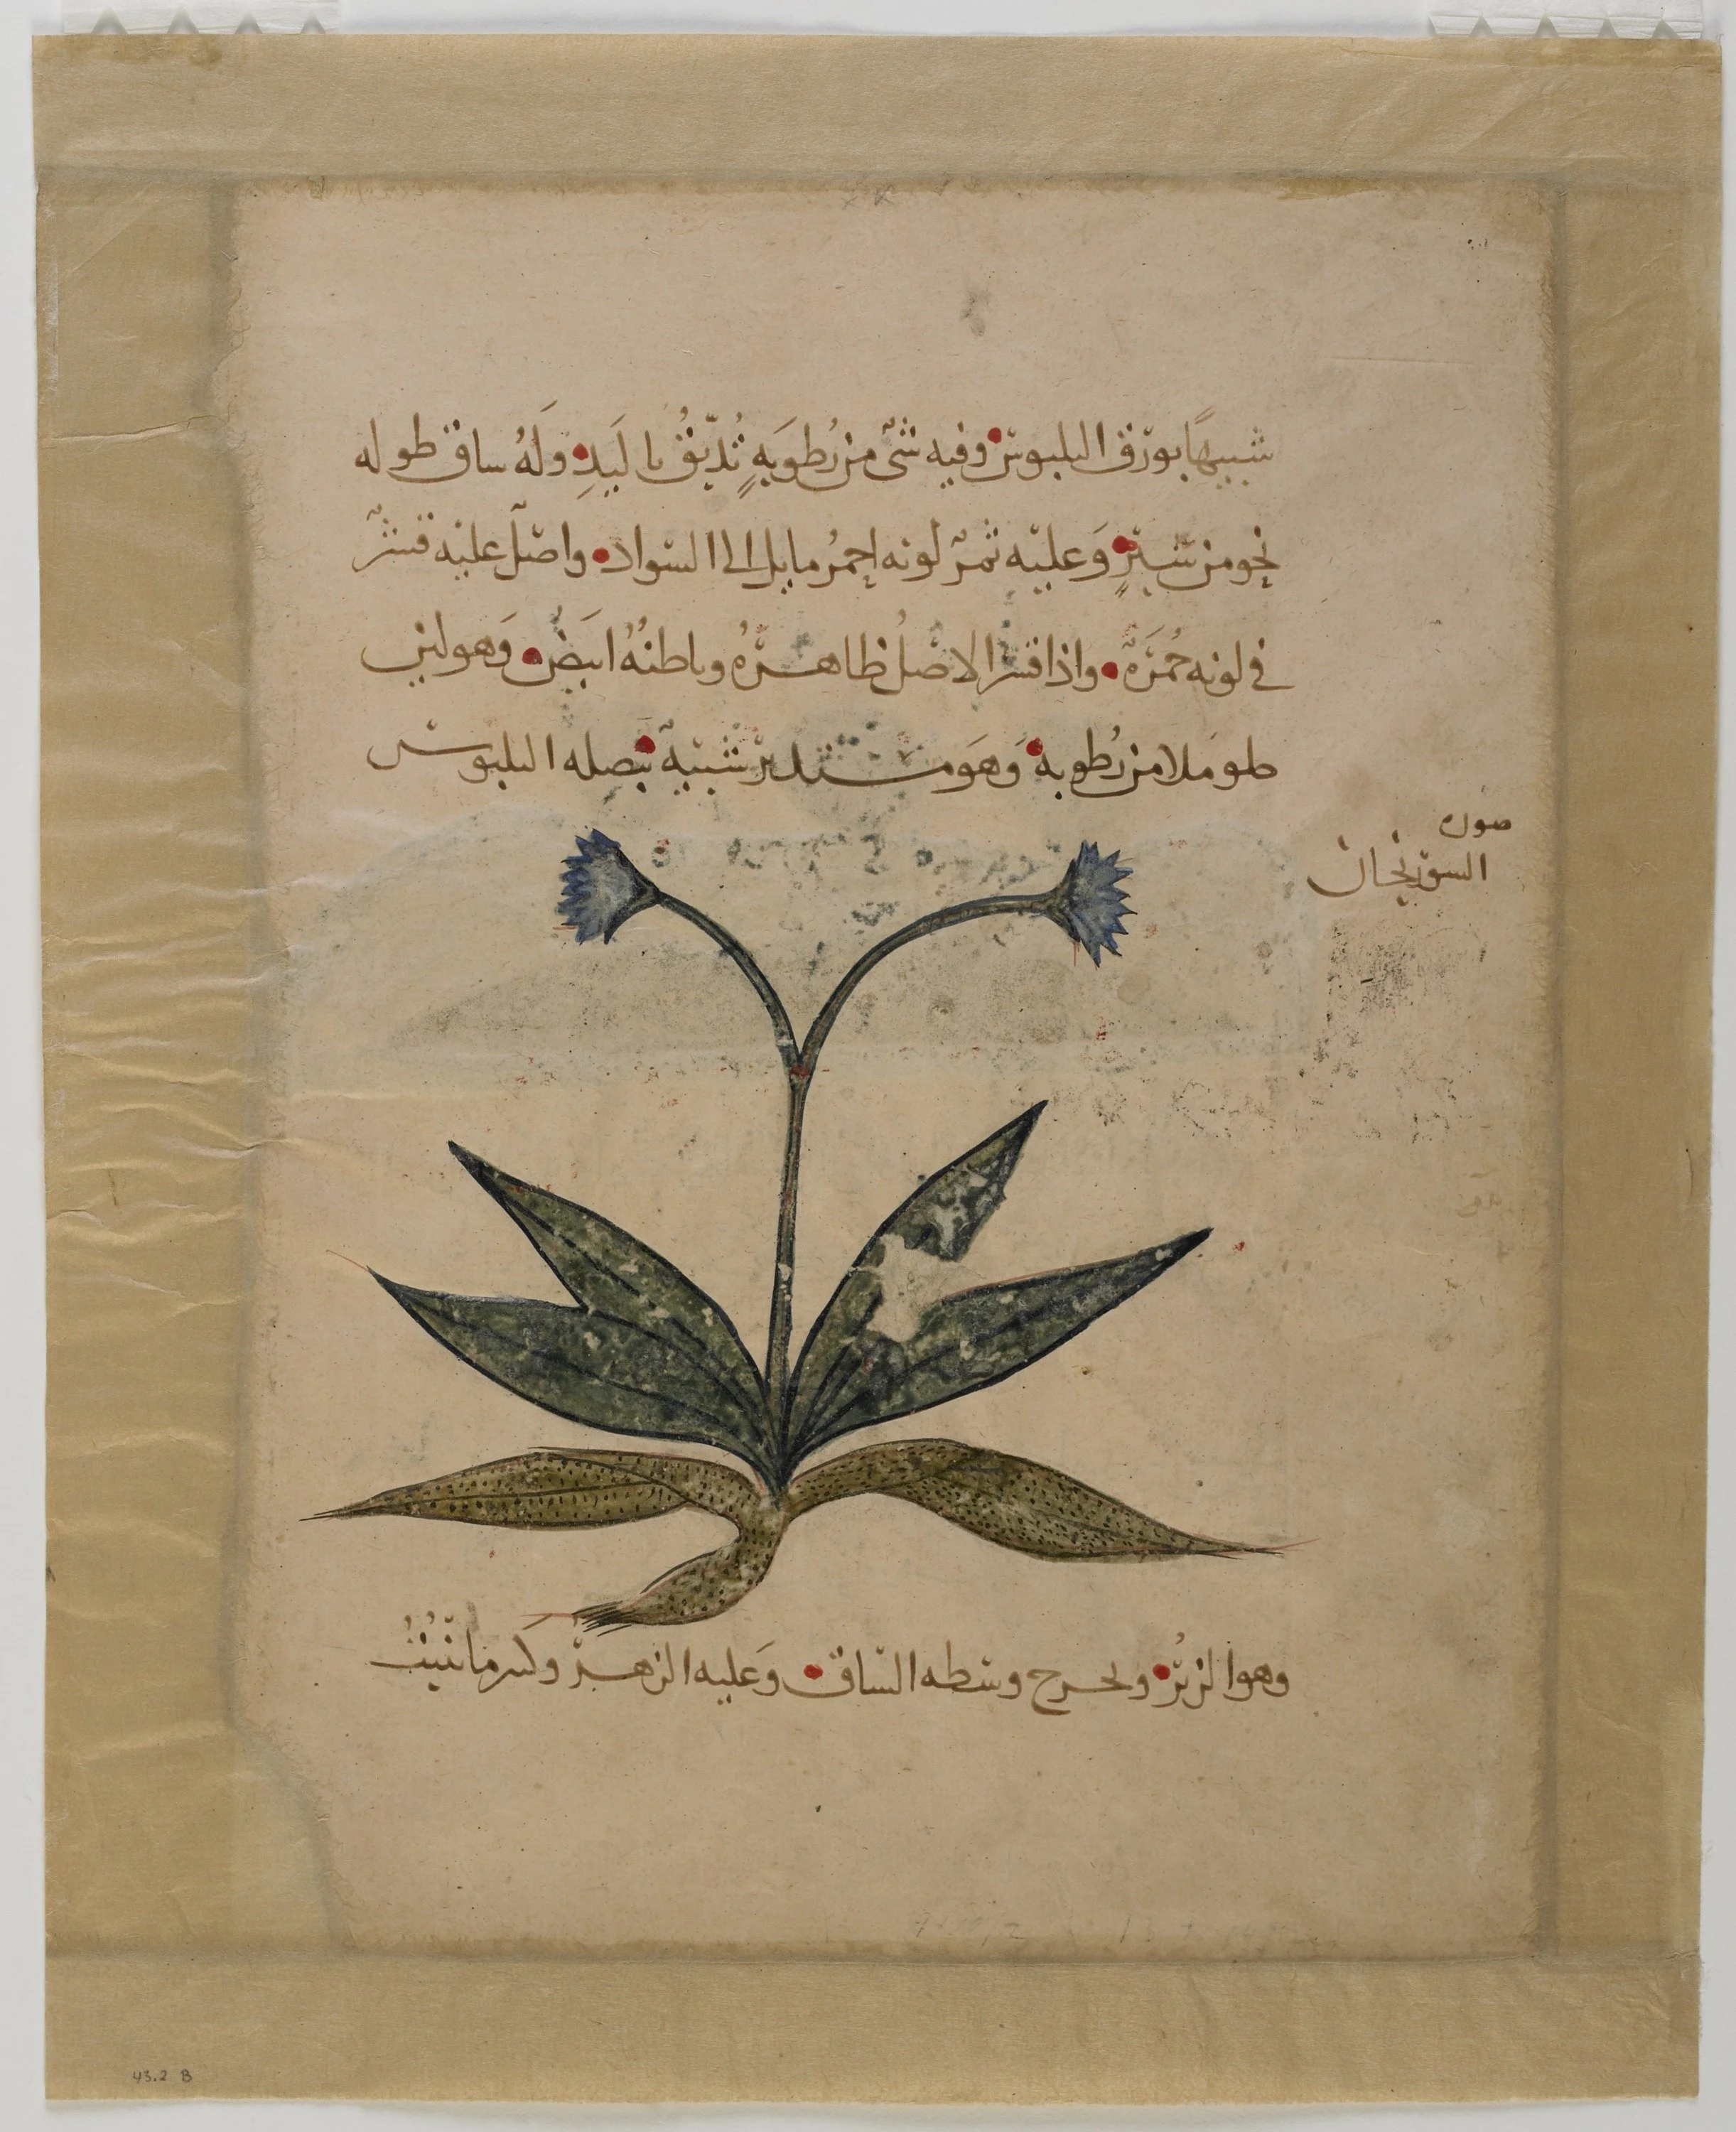 شبيهًا بورق البلبوس وفيه شىٌ من رُطوبَةٍ تُدَبّقُ باليَدِ وَلَهُ ساق طوله
نحو من شبرٍ وَعليه ثمرٌ لونه احمرُ مايل الى السواد واصل عليه قشرٌ
فى لونه حُمرَةٌ واذا قشر الاصلُ ظاهرهُ وباطنُهُ ابيَضُ وَهو لين
حلو ملا من رُطوبه وَهوَ مستدير شبيهٌ ببصله البلبوس
صوره
السورنجان
وهو الزيرُ ويخرج وسطه السّاق وَعليه الزهر وكسر ما ينبُتُ
43.2 B